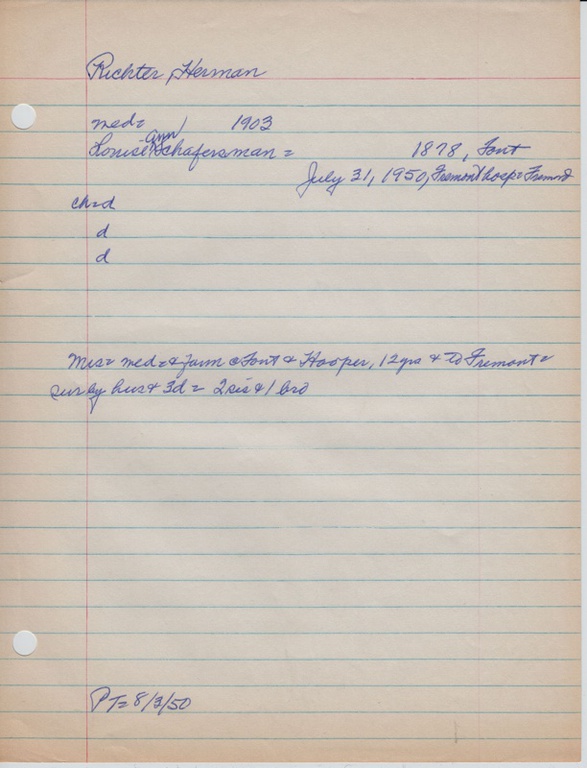 Richter, Herman
med= 1903
Louise Ann Schafersman = 1878, Font
July 31, 1950, Fremont hosp= Fremont
ch=d
d
d
Mrs= med= & farm @ Font & Hooper, 12 yrs & to Fremont =
sur by hus & 3d = 2 sis & 1 bro
PT= 8/3/50